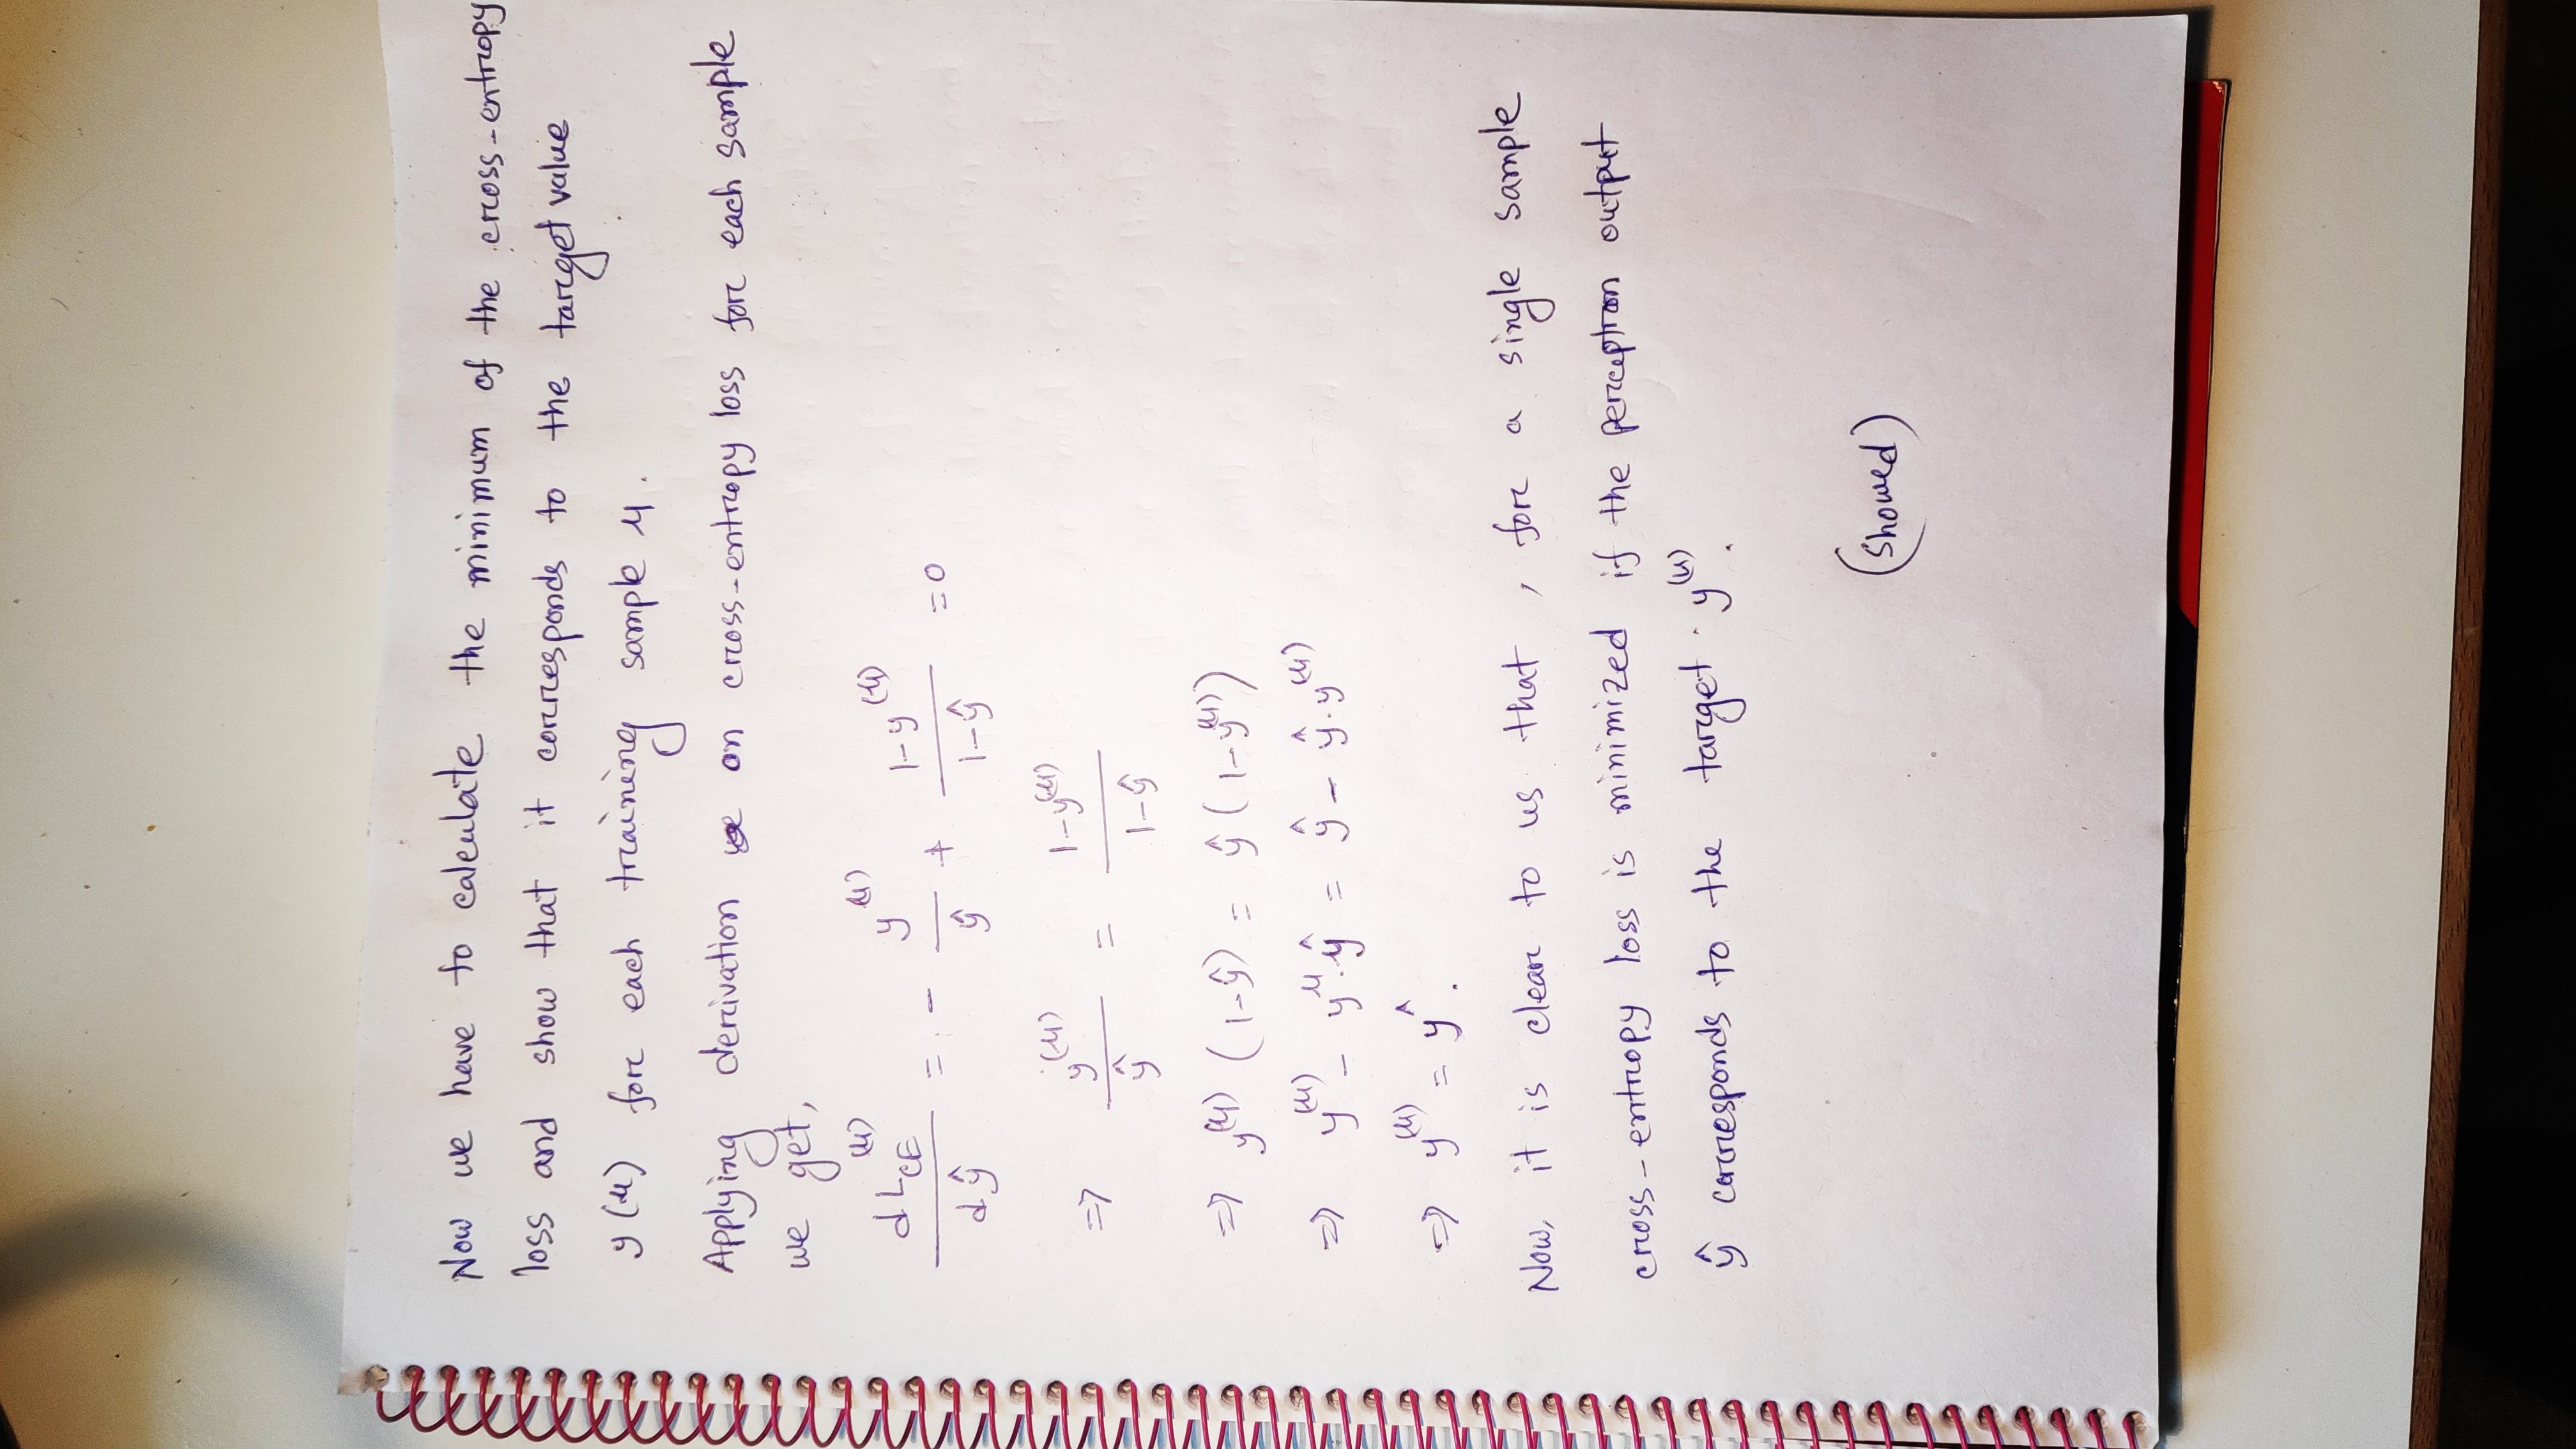 Now we have to calculate the minimum of the cross-entropy
loss and show that it corresponds to the target value
y(μ) for each training sample μ.
Applying derivation on cross-entropy loss for each sample
we get,
dL_CE^(μ) / dŷ = - y^(μ) / ŷ + (1-y^(μ)) / (1-ŷ) = 0
⇒ y^(μ) / ŷ = (1-y^(μ)) / (1-ŷ)
⇒ y^(μ) (1-ŷ) = ŷ (1-y^(μ))
⇒ y^(μ) - y^μ.ŷ = ŷ - ŷ.y^(μ)
⇒ y^(μ) = ŷ.
Now, it is clear to us that, for a single sample
cross-entropy loss is minimized if the perceptron output
ŷ corresponds to the target y^(μ).
(Showed)